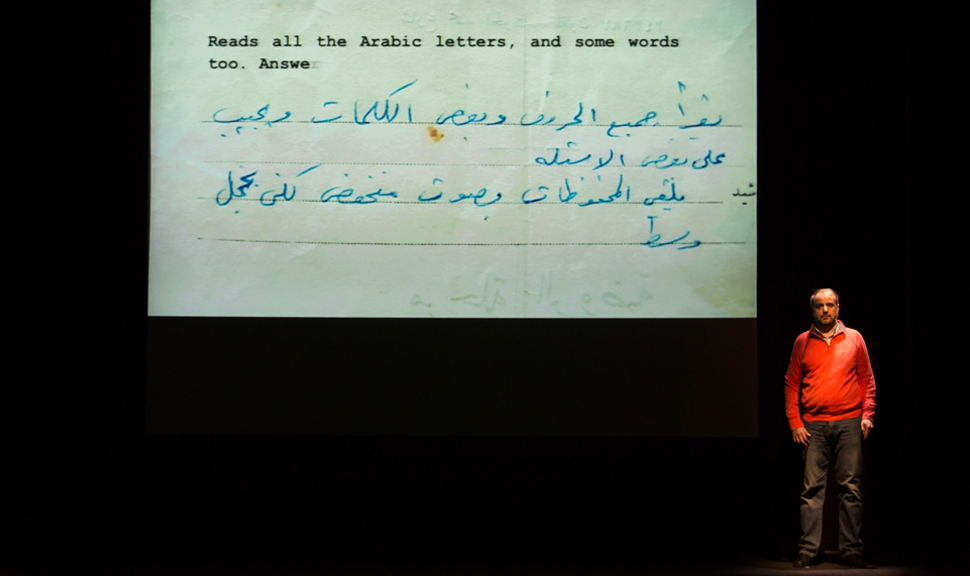 Reads all the Arabic letters, and some words
too. Answe
يقرأ جميع الحروف وبعض الكلمات ويجيب
على بعض الاسئله
يلقي المحفوظات بصوت منخفض لكن بخجل
وسط